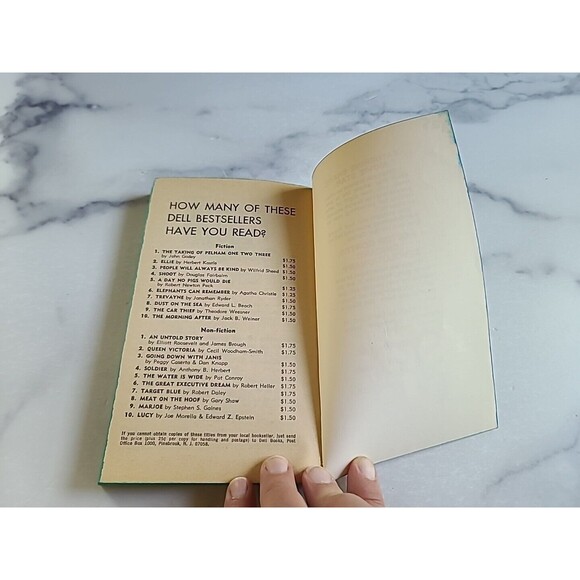 HOW MANY OF THESE
DELL BESTSELLERS
HAVE YOU READ?
Fiction
1. THE TAKING OF PELHAM ONE TWO THREE
by John Godey $1.75
2. ELLIE by Herbert Kastle $1.50
3. PEOPLE WILL ALWAYS BE KIND by Wilfrid Sheed $1.50
4. SHOOT by Douglas Fairbairn $1.50
5. A DAY NO PIGS WOULD DIE
by Robert Newton Peck $1.25
6. ELEPHANTS CAN REMEMBER by Agatha Christie $1.25
7. TREVAYNE by Jonathan Ryder $1.75
8. DUST ON THE SEA by Edward L. Beach $1.75
9. THE CAR THIEF by Theodore Weesner $1.50
10. THE MORNING AFTER by Jack B. Weiner $1.50
Non-fiction
1. AN UNTOLD STORY
by Elliott Roosevelt and James Brough $1.75
2. QUEEN VICTORIA by Cecil Woodham-Smith $1.75
3. GOING DOWN WITH JANIS
by Peggy Caserta & Dan Knapp $1.50
4. SOLDIER by Anthony B. Herbert $1.75
5. THE WATER IS WIDE by Pat Conroy $1.50
6. THE GREAT EXECUTIVE DREAM by Robert Heller $1.75
7. TARGET BLUE by Robert Daley $1.75
8. MEAT ON THE HOOF by Gary Shaw $1.50
9. MARJOE by Stephen S. Gaines $1.50
10. LUCY by Joe Morella & Edward Z. Epstein $1.50
If you cannot obtain copies of these titles from your local bookseller, just send
the price (plus 25c per copy for handling and postage) to Dell Books, Post
Office Box 1000, Pinebrook, N. J. 07058.